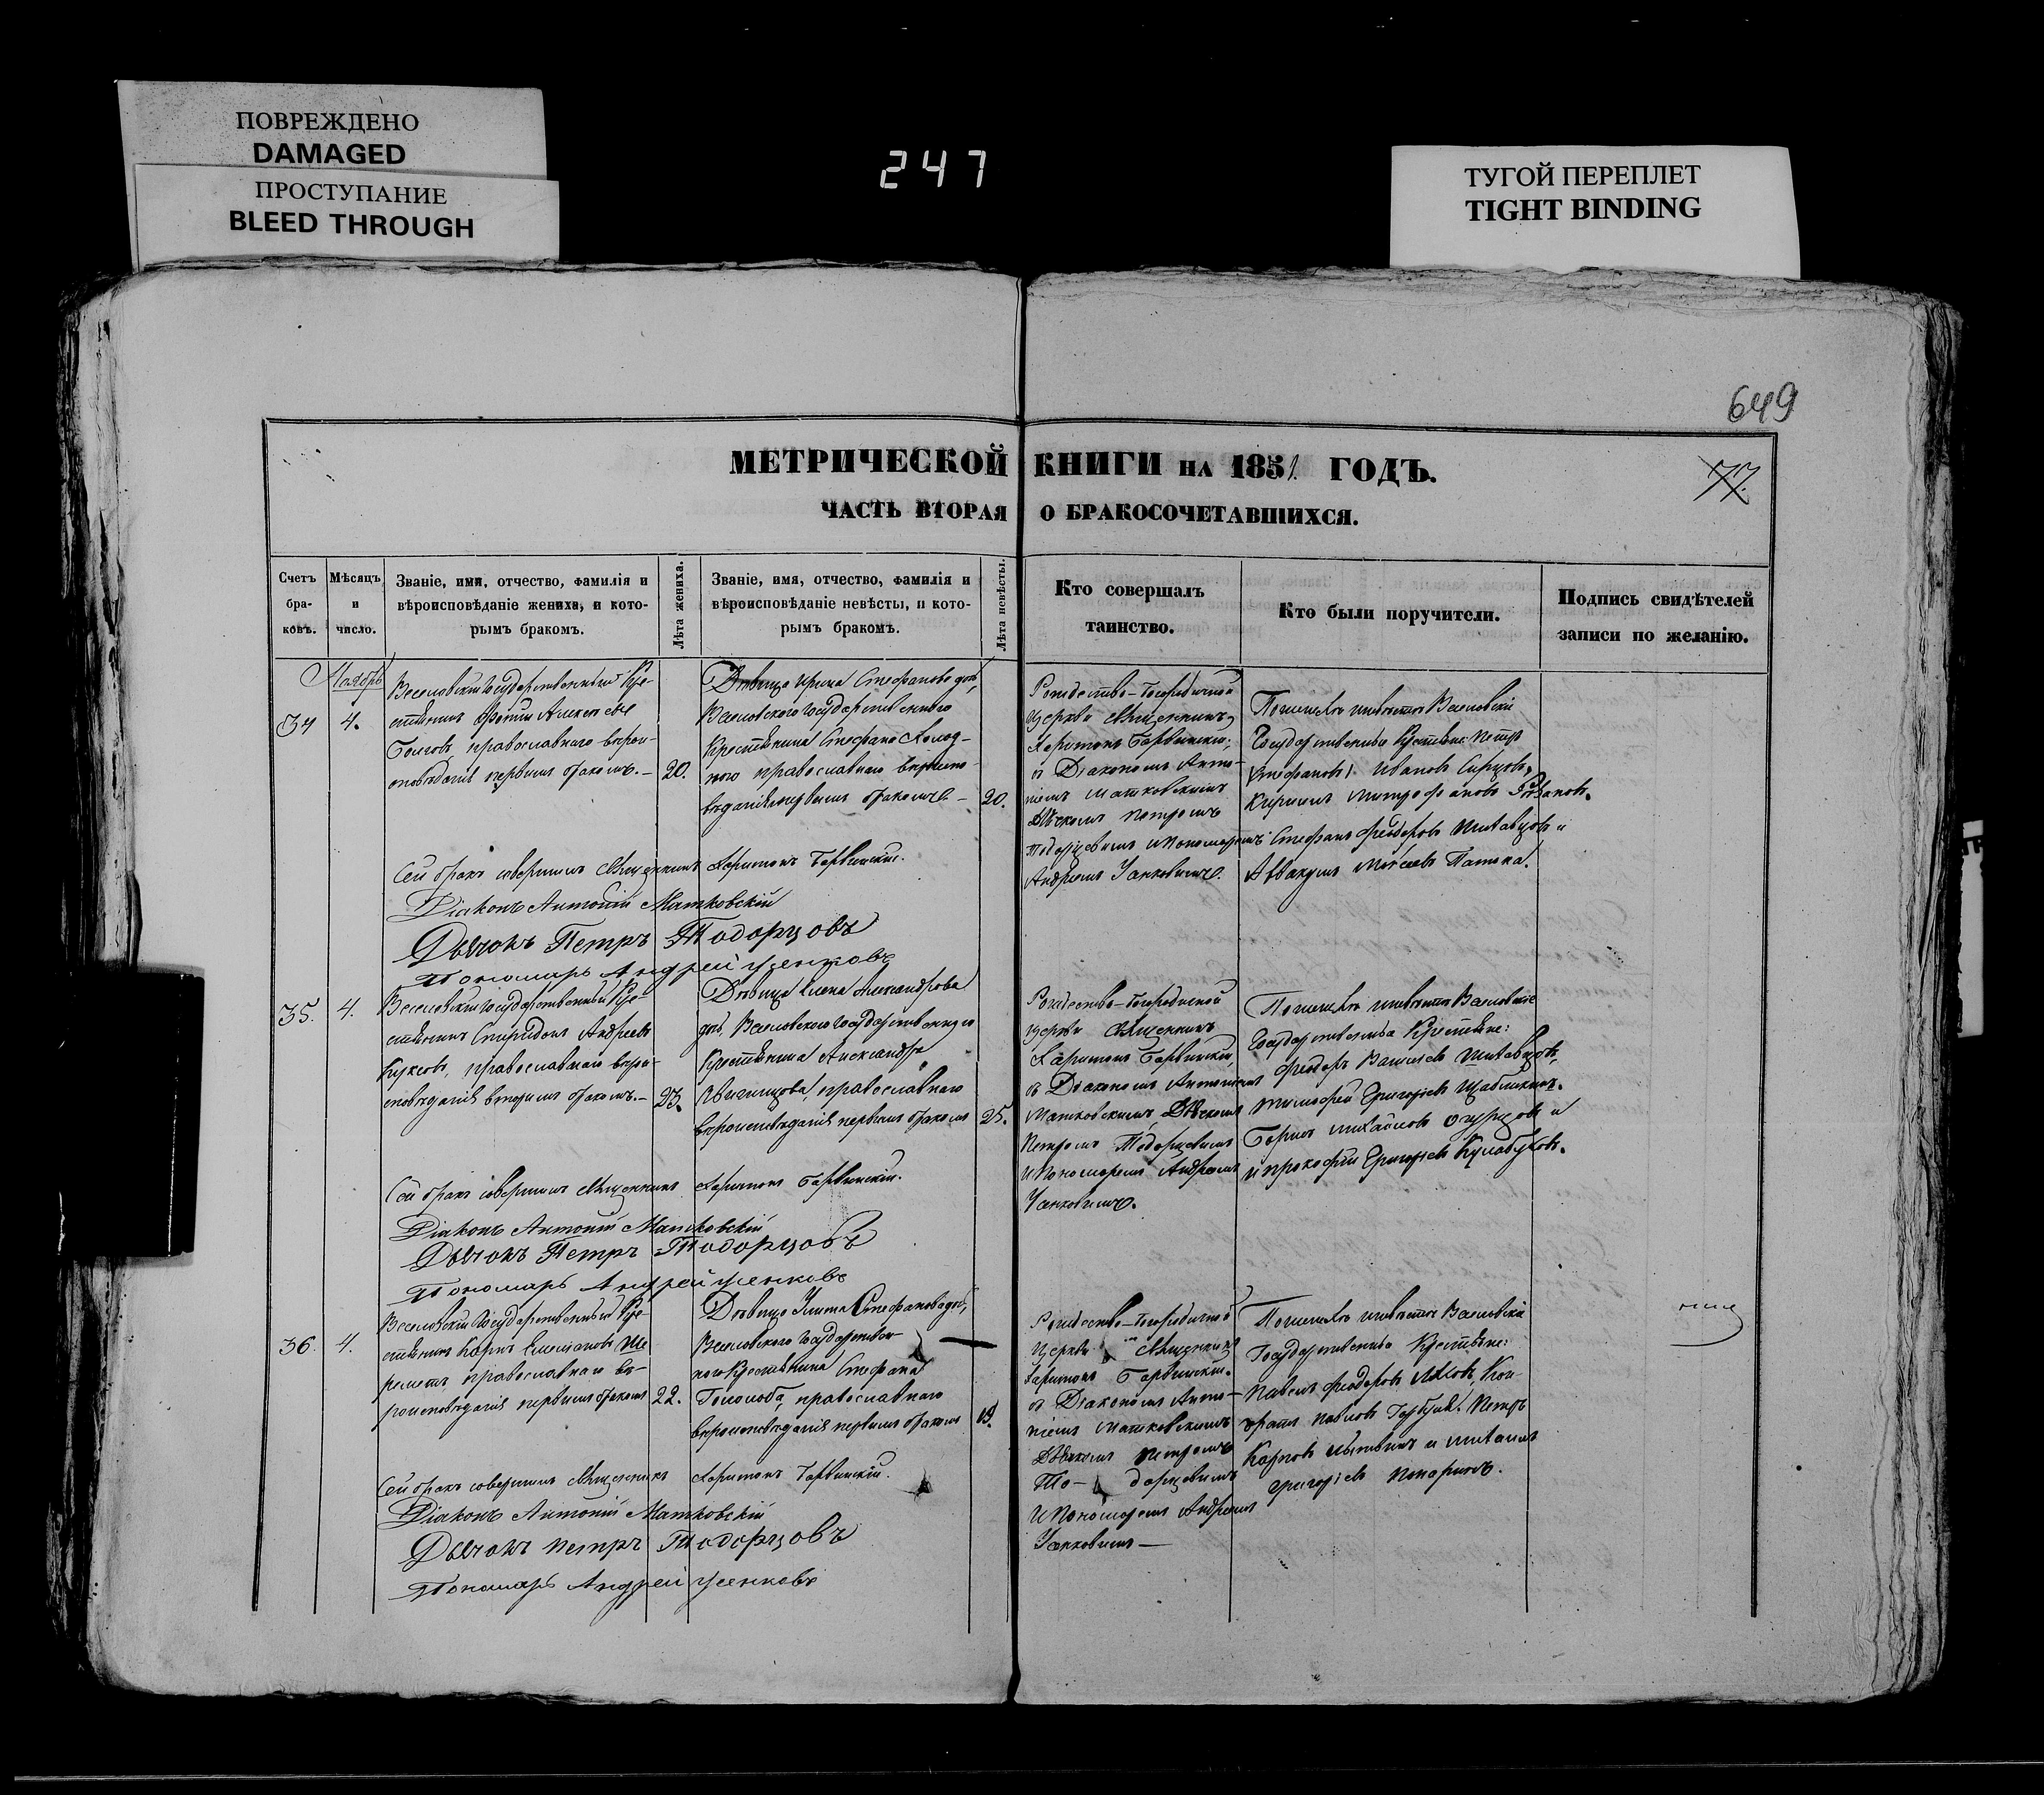 ПОВРЕЖДЕНО
DAMAGED
ПРОСТУПАНИЕ
BLEED THROUGH
247
ТУГОЙ ПЕРЕПЛЕТ
TIGHT BINDING
649
МЕТРИЧЕСКОЙ КНИГИ НА 1851 ГОДЪ.
77.
ЧАСТЬ ВТОРАЯ О БРАКОСОЧЕТАВШИХСЯ.
Счетъ бра-ковъ.
Мѣсяцъ и число.
Званіе, имя, отчество, фамилія и
вѣроисповѣданіе жениха, и кото-
рымъ бракомъ.
Лѣта жениха.
Званіе, имя, отчество, фамилія и
вѣроисповѣданіе невѣсты, и кото-
рымъ бракомъ.
Лѣта невѣсты.
Кто совершалъ
таинство.
Кто были поручители.
Подпись свидѣтелей
записи по желанію.
Ноябрь
34
4.
Веселовскій Государственный Кре-
стьянинъ Фотій Алексѣевъ
православнаго вѣрои-
сповѣданія первымъ бракомъ.—
20.
Дѣвица Ирина Стефанова дочь,
Веселовского Государственного
Крестьянина Стефана
православнаго вѣроиспо-
вѣданія первымъ бракомъ —
20.
Рождество-Богородичной
Церкви Священникъ
Харитонъ Барвинскій,
съ Діакономъ Анто-
ніемъ Матковскимъ
Дьячкомъ Петромъ
Тодорцовымъ и Пономаремъ
Андреемъ
Веселовскіе
Государственные Крестьяне: Петръ
Стефановъ, Иванъ
Кириллъ Митрофановъ
Стефанъ Феодоровъ и
Аввакумъ Моисеевъ
Сей бракъ совершилъ Священникъ Харитонъ Барвинскій.
Діаконъ Антоній Матковскій
Дьячокъ Петръ Тодорцовъ
Пономарь Андрей Усенковъ
35.
4.
Веселовскій Государственный Кре-
стьянинъ Спиридонъ Андреевъ
православнаго вѣрои-
сповѣданія вторымъ бракомъ.—
23.
Дѣвица Елена Александрова
дочь, Веселовского Государственнаго
Крестьянина Александра
православнаго
вѣроисповѣданія первымъ бракомъ
25.
Рождество-Богородичной
Церкви Священникъ
Харитонъ Барвинскій,
съ Діакономъ Антоніемъ
Матковскимъ, Дьячкомъ
Петромъ Тодорцовымъ
и Пономаремъ Андреемъ
Веселовскіе
Государственные Крестьяне:
Феодоръ
Тимофей Григорьевъ
Борисъ Михайловъ и
Прокофій Григорьевъ
Сей бракъ совершилъ Священникъ Харитонъ Барвинскій.
Діаконъ Антоній Матковскій
Дьячокъ Петръ Тодорцовъ
Пономарь Андрей Усенковъ
36.
4.
Веселовскій Государственный Кре-
стьянинъ Карпъ Ше-
реметъ, православнаго вѣ-
роисповѣданія первымъ бракомъ
22.
Дѣвица Улита Стефанова дочь,
Веселовского Государствен-
ного Крестьянина Стефана
православнаго
вѣроисповѣданія первымъ бракомъ
19.
Рождество-Богородичной
Церкви Священникъ
Харитонъ Барвинскій.
съ Діакономъ Анто-
ніемъ Матковскимъ
Дьячкомъ Петромъ
То- дорцовымъ
и Пономаремъ Андреемъ
Веселовскіе
Государственные Крестьяне:
Павелъ Феодоровъ Кон-
дратъ Павловъ Петръ
Карповъ и
Григорьевъ
Сей бракъ совершилъ Священникъ Харитонъ Барвинскій.
Діаконъ Антоній Матковскій
Дьячокъ Петръ Тодорцовъ
Пономарь Андрей Усенковъ